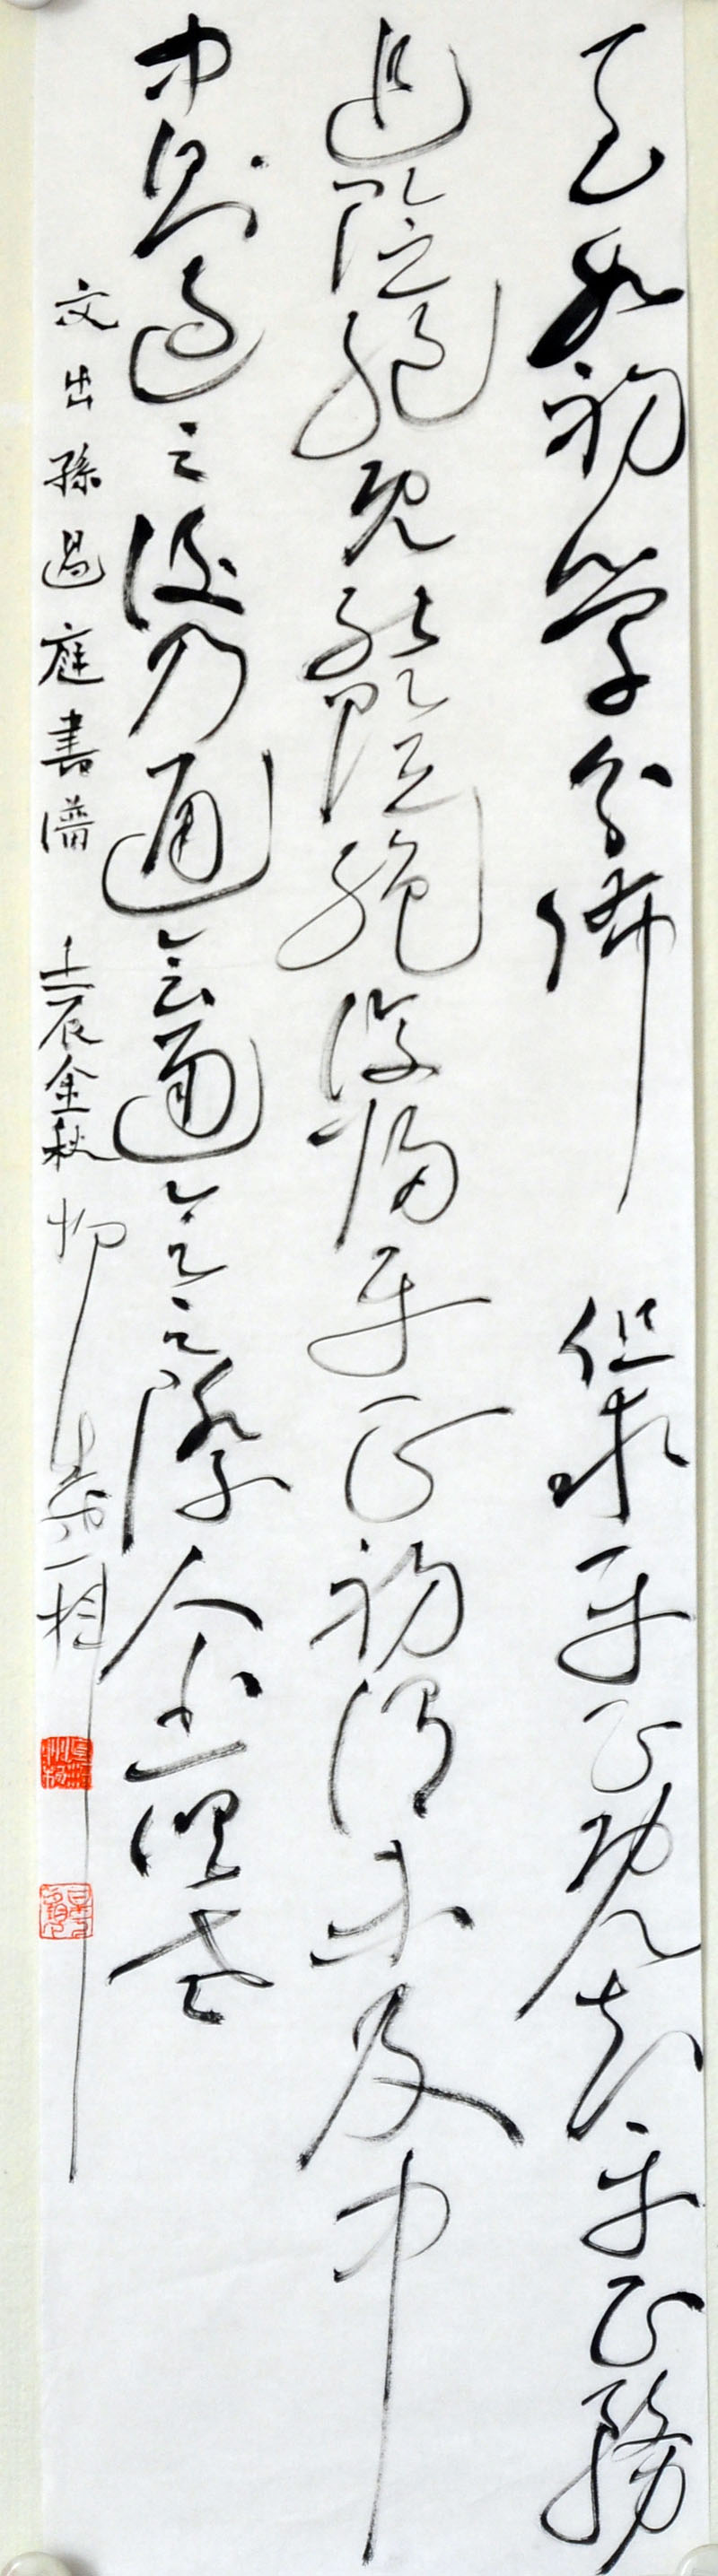 至如初學分佈但求平正既知平正務
追險絕既能險絕復歸平正初謂未及中
中則過之後乃通會通會之際人書俱老
文出孫過庭書譜 壬辰金秋